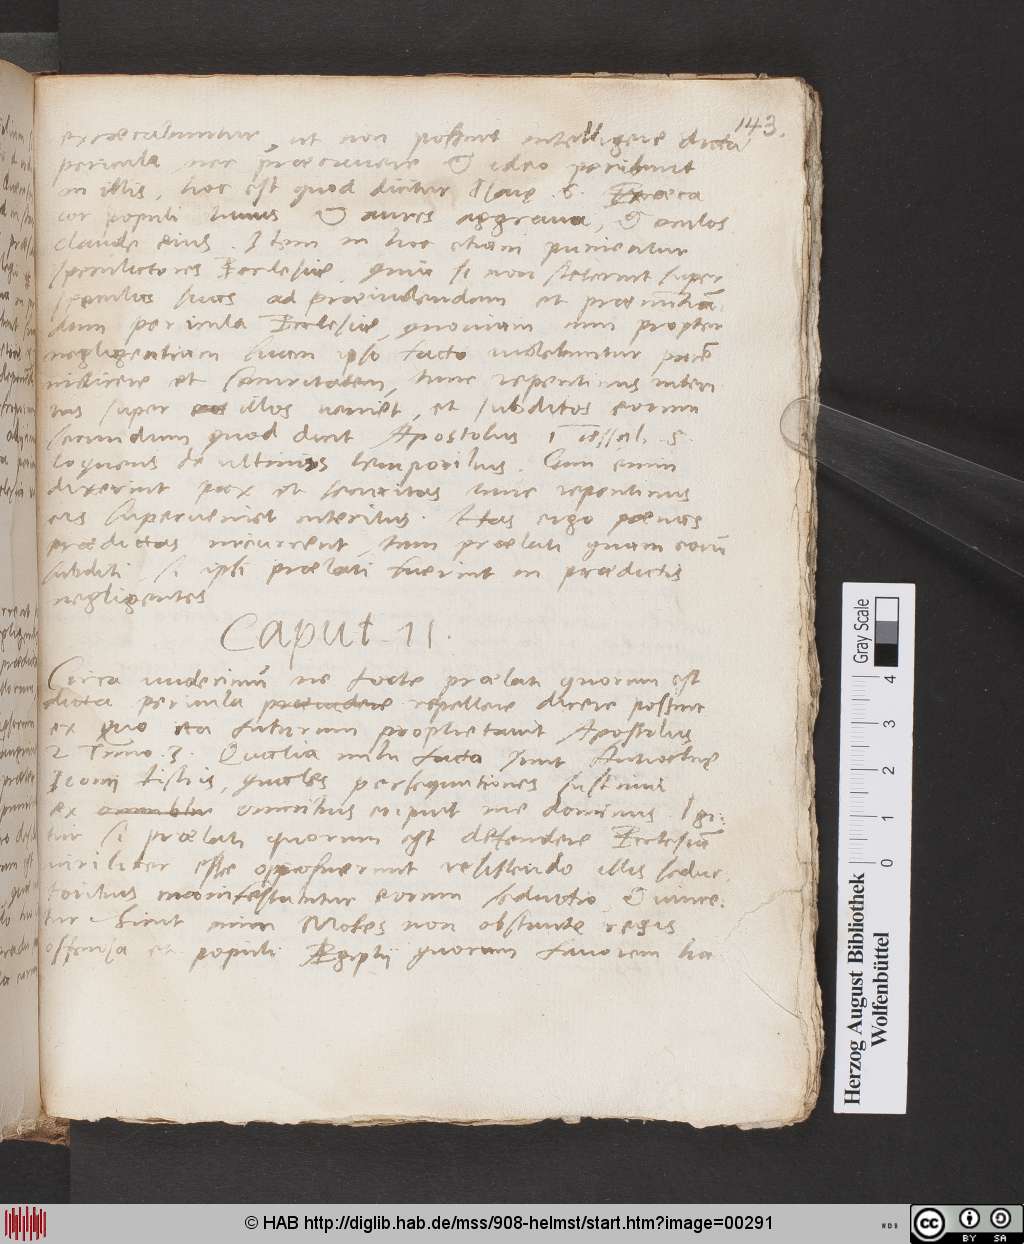 143.
excaecabuntur, ut non possint intelligere dicta
pericula nec praecavere & ideo peribunt
in illis, hoc est quod dicitur Isaię 6. Excaeca
cor populi huius & aures aggrava, & oculos
claude eius. Item in hoc etiam punientur
speculatores Ecclesiae, quia si non steterint super
speculas suas ad praevidendam et praenuntiā-
dum pericula Ecclesiæ, quoniam cum propter
negligentiam suam ipso facto videbuntur pacē
indicere et securitatem, tunc repentinus interi
tus super illos veniet, et subditos eorum
secundum quod dicit Apostolus 1 Tessal. 5.
loquens de ultimis temporibus. Cum enim
dixerint pax et securitas tunc repentinus
eis superveniet interitus. Has ergo poenas
praedictas incurrent, tam praelati quam eorū
subditi, si ipsi praelati fuerint in praedictis
negligentes
Caput 11.
Circa undecimū ne forte praelati quorum est
dicta pericula praecavere repellere dicere possint
ex quo ita futurum prophetavit Apostolus
2 Timo. 3. Qualia mihi facta sunt Antiochię
Iconii Listris, quales persequutiones sustinui
ex omnibus eripuit me dominus. Igi-
tur si praelati quorum est defendere Ecclesiā
viriliter esse opposuerint resistendo illis seduc-
toribus manifestabitur eorum seductio & vince-
tur. Sicut enim Moses non obstante regis
offensa et populi Ægiptii quorum favorem ha
Herzog August Bibliothek
Wolfenbüttel
Gray Scale
0 1 2 3 4
© HAB http://diglib.hab.de/mss/908-helmst/start.htm?image=00291
WDB
cc BY SA